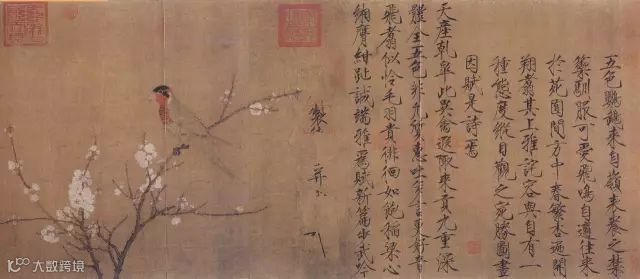 五色鸚鵡來自嶺表養之禁
籞馴服可愛飛鳴自適往來
於苑囿間方中春繁杏遍開
翔翥其上雅詫容與自有一
種態度縱目觀之宛勝圖畫
因賦是詩焉
天產乾皐此異禽遐陬來貢九重深
體全五色非凡質惠吐多言更好音
飛翥似怜毛羽貴徘徊如飽稻粱心
緗膺紺趾誠端雅為賦新篇步武吟
製 并
大数跨境